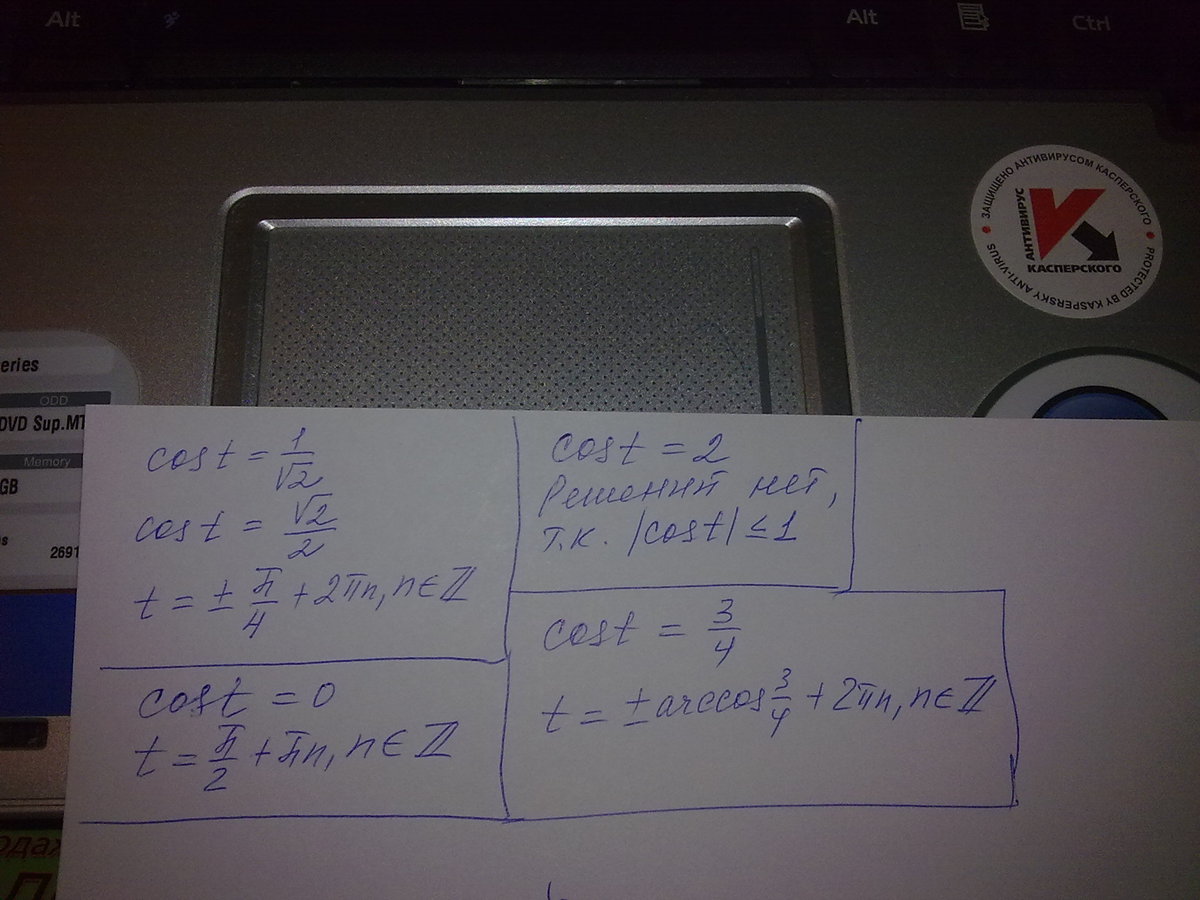 Alt
Alt
Ctrl
ЗАЩИЩЕНО АНТИВИРУСОМ КАСПЕРСКОГО
АНТИВИРУС
КАСПЕРСКОГО
PROTECTED BY KASPERSKY ANTI-VIRUS
eries
ODD
DVD Sup.MT
Memory
GB
2691
cos t = 1/√2
cos t = √2/2
t = ± π/4 + 2πn, n ∈ ℤ
cos t = 0
t = π/2 + πn, n ∈ ℤ
cos t = 2
Решений нет,
т.к. |cos t| ≤ 1
cos t = 3/4
t = ± arccos 3/4 + 2πn, n ∈ ℤ